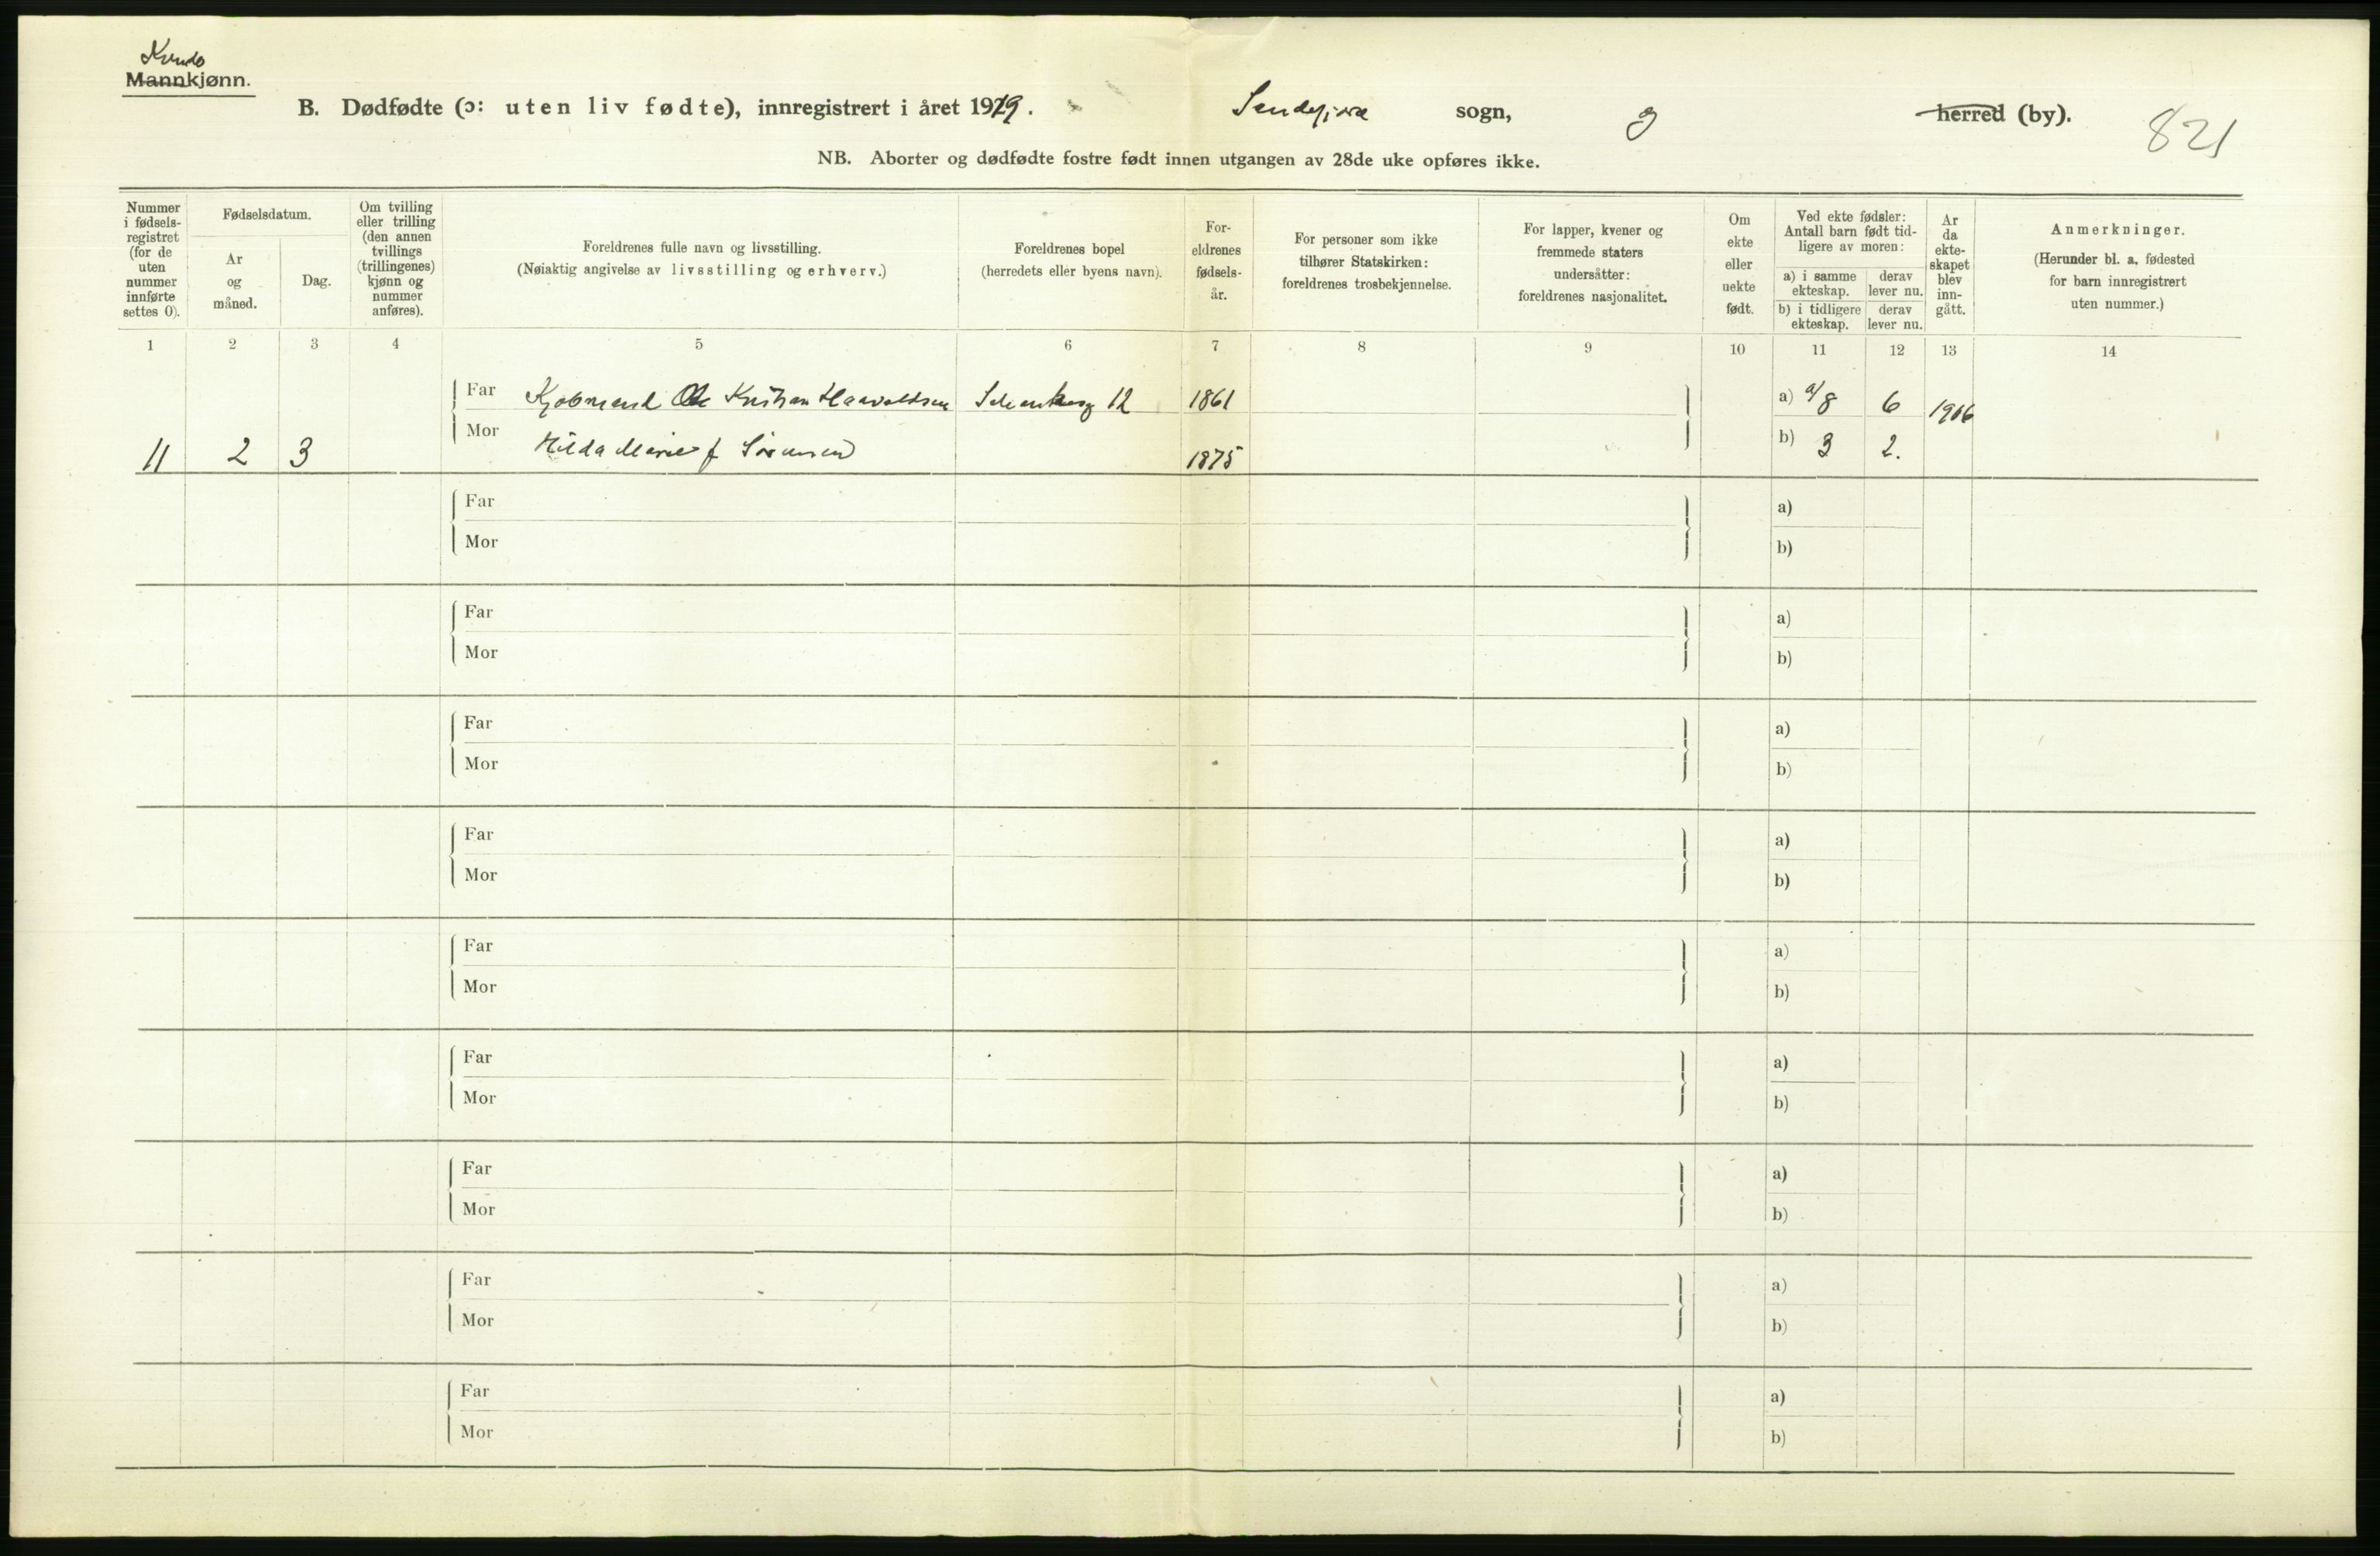 Kvinde
Mannkjønn.
B. Dødfødte (ɔ: uten liv fødte), innregistrert i året 1919. Sandefjord sogn, g herred (by). 821
NB. Aborter og dødfødte fostre født innen utgangen av 28de uke opføres ikke.
Nummer i fødsels-registret (for de uten nummer innførte settes 0).
Fødselsdatum.
År og måned.
Dag.
Om tvilling eller trilling (den annen tvillings (trillingenes) kjønn og nummer anføres).
Foreldrenes fulle navn og livsstilling.
(Nøiaktig angivelse av livsstilling og erhverv.)
Foreldrenes bopel
(herredets eller byens navn).
For-eldrenes fødsels-år.
For personer som ikke tilhører Statskirken: foreldrenes trosbekjennelse.
For lapper, kvener og fremmede staters undersåtter: foreldrenes nasjonalitet.
Om ekte eller uekte født.
Ved ekte fødsler: Antall barn født tid-ligere av moren:
a) i samme ekteskap.
derav lever nu.
b) i tidligere ekteskap.
derav lever nu.
Ar da ekte-skapet blev inn-gått.
Anmerkninger.
(Herunder bl. a. fødested for barn innregistrert uten nummer.)
1 2 3 4 5 6 7 8 9 10 11 12 13 14
Far Kjøbmand Ole Kristian Haavaldsen 12 1861 a) a/8 6 1906
Mor Hilda Marie f Sørensen 1875 b) 3 2.
11 2 3
Far a)
Mor b)
Far a)
Mor b)
Far a)
Mor b)
Far a)
Mor b)
Far a)
Mor b)
Far a)
Mor b)
Far a)
Mor b)
Far a)
Mor b)
Far a)
Mor b)